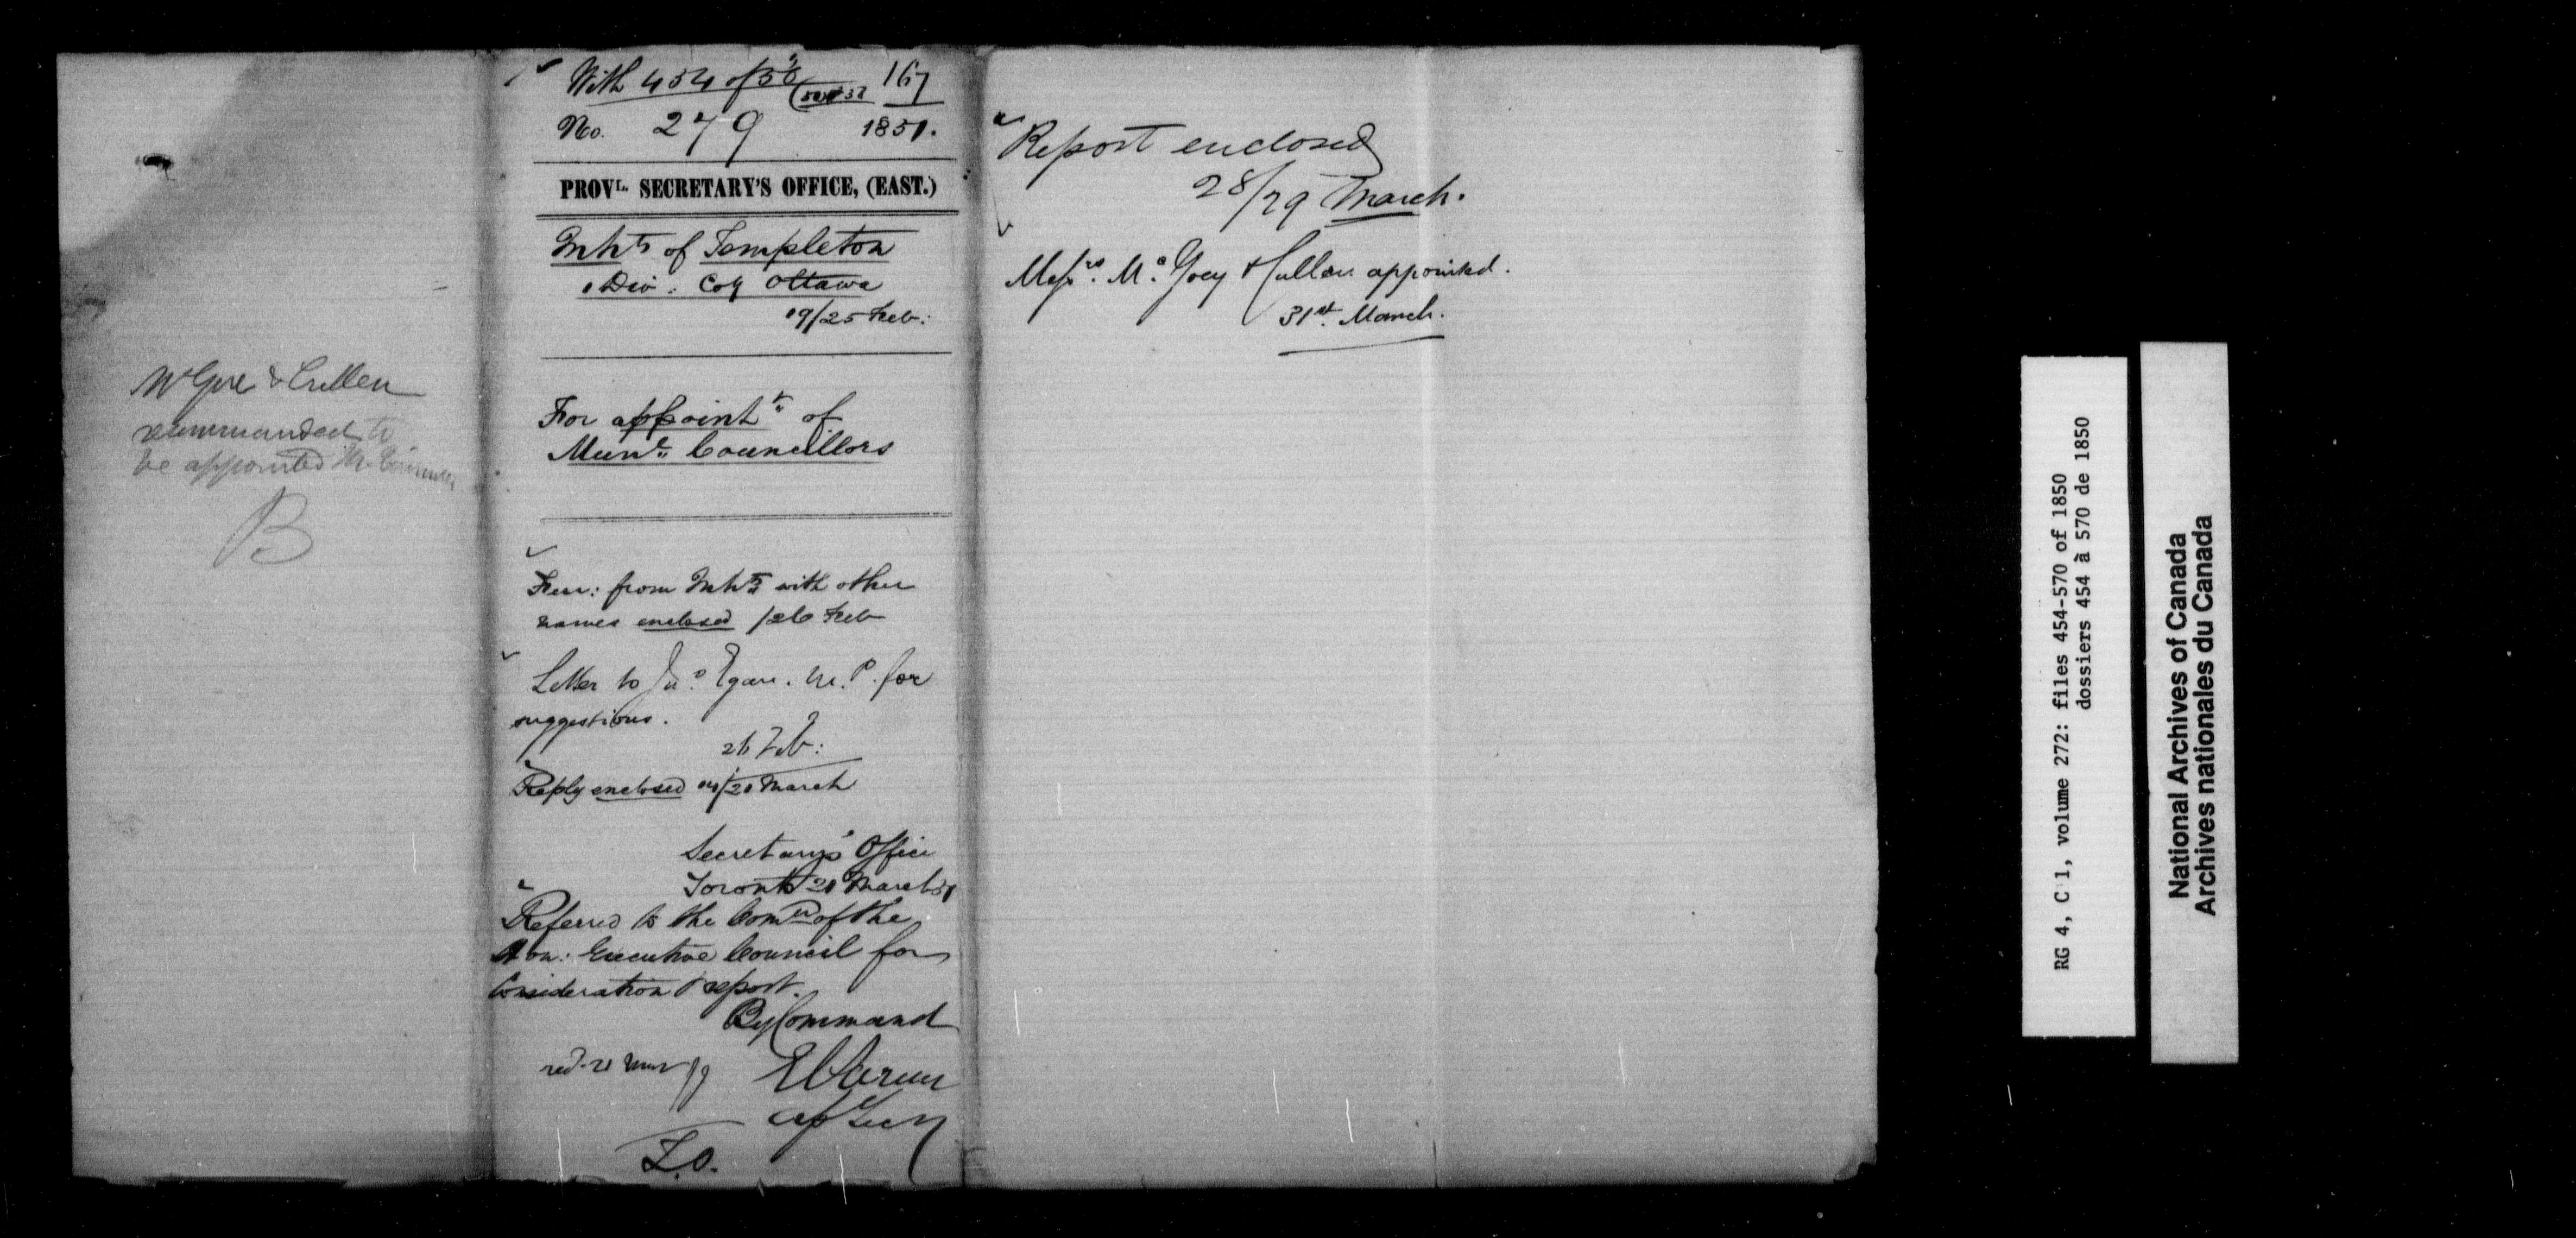 & Cullen
recommended to
be appointed M. 
B
With 454 of 50 167
No. 279 1851.
PROVL. SECRETARY'S OFFICE, (EAST.)
Inhts of Templeton
Div: Coy Ottawa
19/25 Feb:
For appointt of
Munl Councillors
from Inhts with other
names enclosed /26 Feb
Letter to Jno Egan. M.P. for
suggestions.
26 Feb:
Reply enclosed /20 March
Secretary's Office
Toronto 20 March 51
Referred to the Comee of the
Hon: Executive Council for
Consideration & report.
By Command
Report enclosed
28/29 March.
Messrs. McGoey & Cullen appointed.
31st March.
RG 4, C 1, volume 272: files 454-570 of 1850
dossiers 454 à 570 de 1850
National Archives of Canada
Archives nationales du Canada